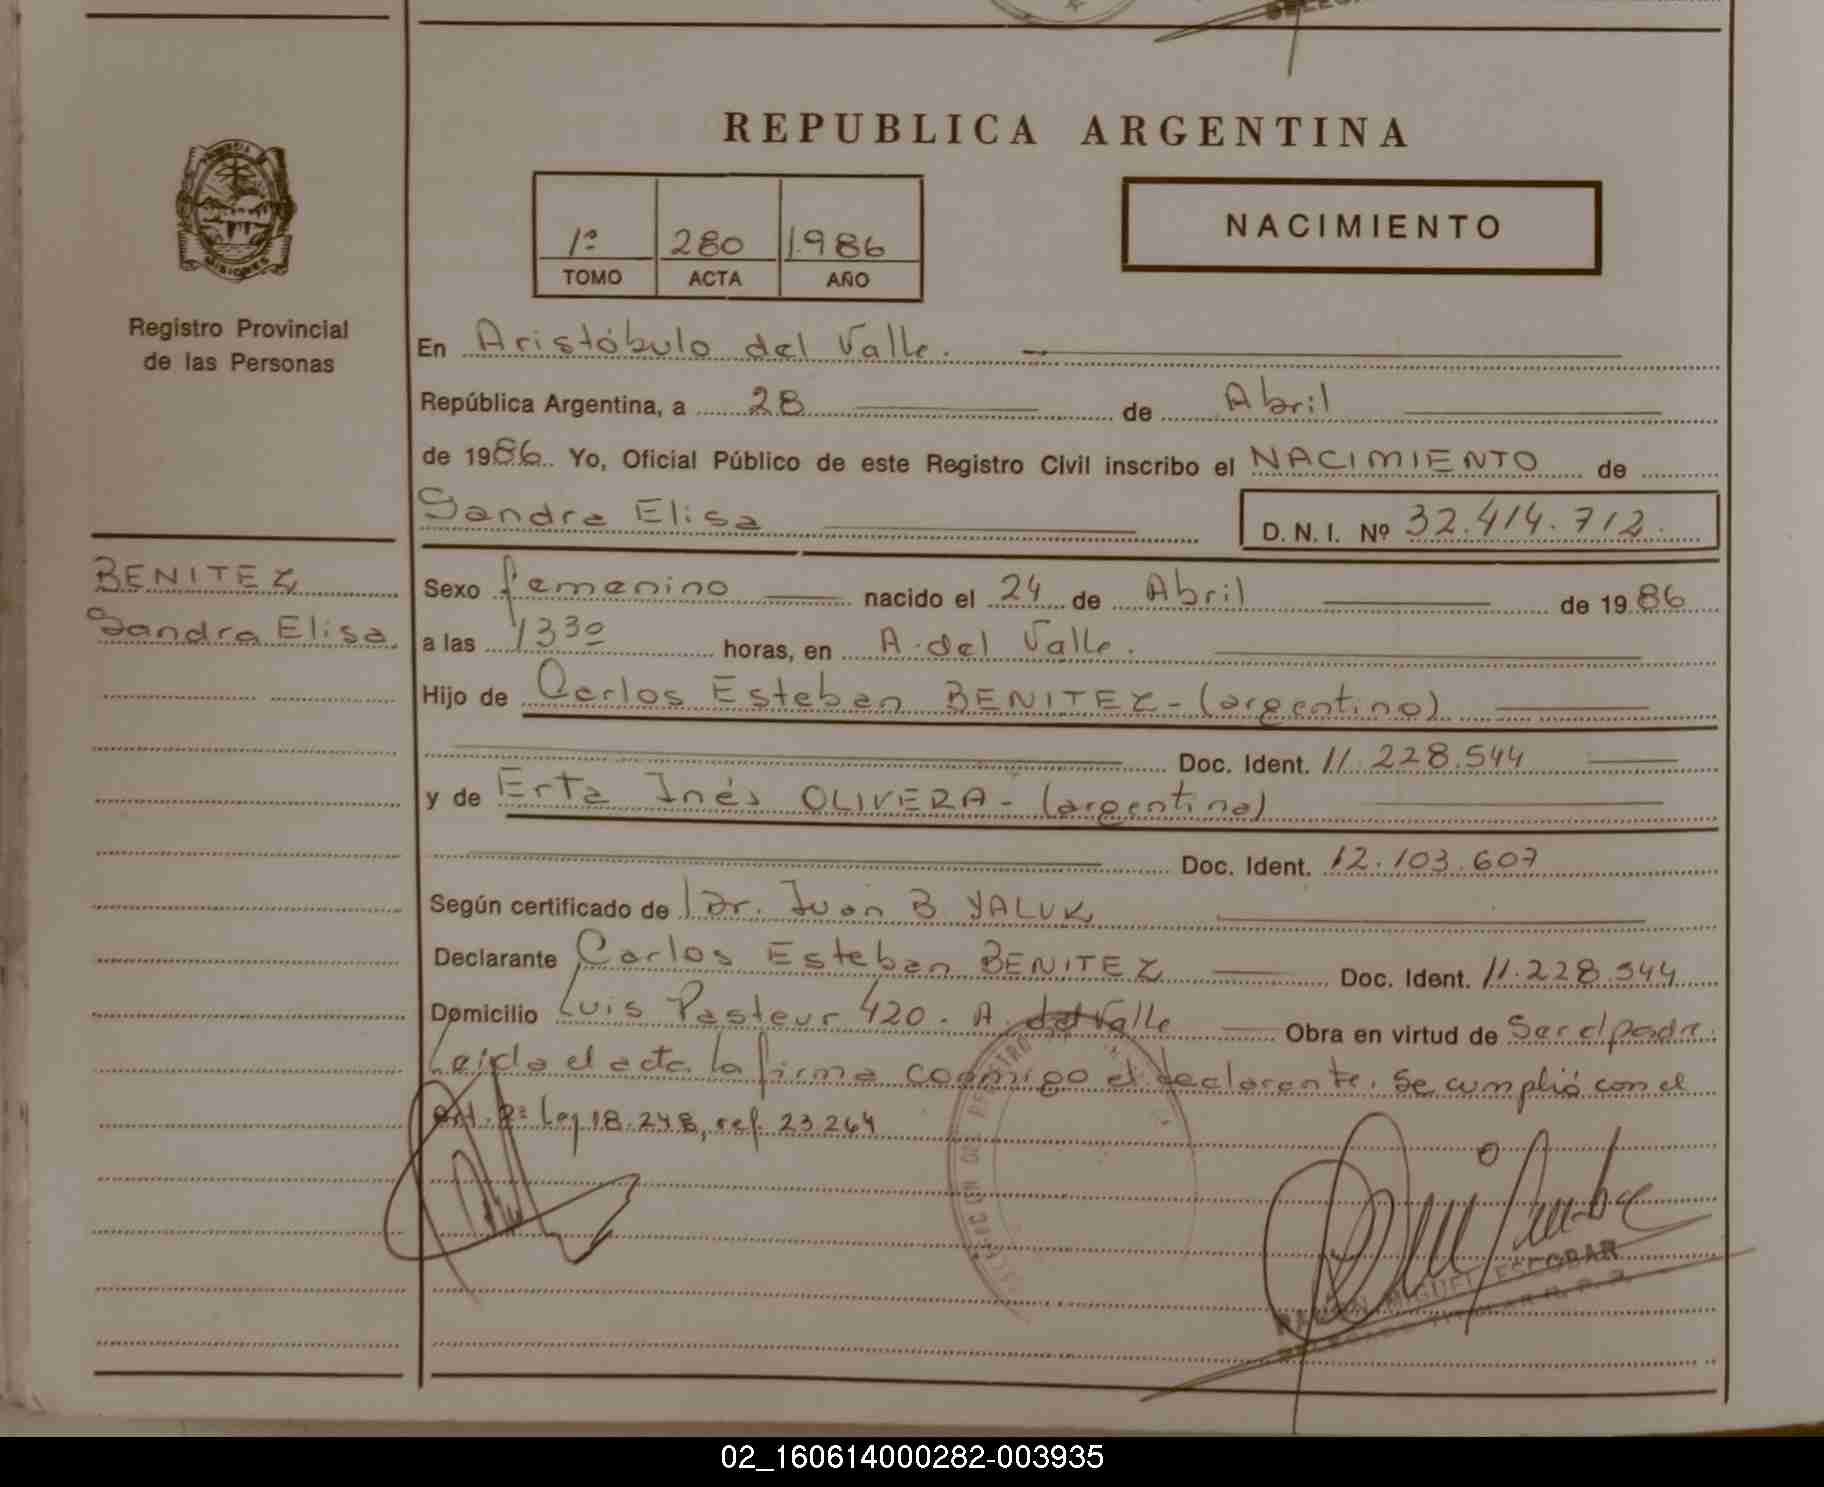 REPUBLICA ARGENTINA
NACIMIENTO
1º 280 1986
TOMO ACTA AÑO
MISIONES
Registro Provincial
de las Personas
En Aristóbulo del Valle.
República Argentina, a 28 de Abril
de 1986. Yo, Oficial Público de este Registro Civil inscribo el NACIMIENTO de
Sandra Elisa D. N. I. Nº 32.414.712.
BENITEZ
Sandra Elisa
Sexo femenino nacido el 24 de Abril de 1986
a las 1330 horas, en A. del Valle.
Hijo de Carlos Esteban BENITEZ - (argentino)
Doc. Ident. 11.228.544
y de Erta Inés OLIVERA - (argentina)
Doc. Ident. 12.103.607
Según certificado de Dr. Juan B YALUK
Declarante Carlos Esteban BENITEZ Doc. Ident. 11.228.544
Domicilio Luis Pasteur 420 - A. del Valle Obra en virtud de Ser el padre.
Leída el acta la firma conmigo el declarante. Se cumplió con el
art. 2º Ley 18.248, ref. 23.264
RAMON MIGUEL ESCOBAR
02_160614000282-003935